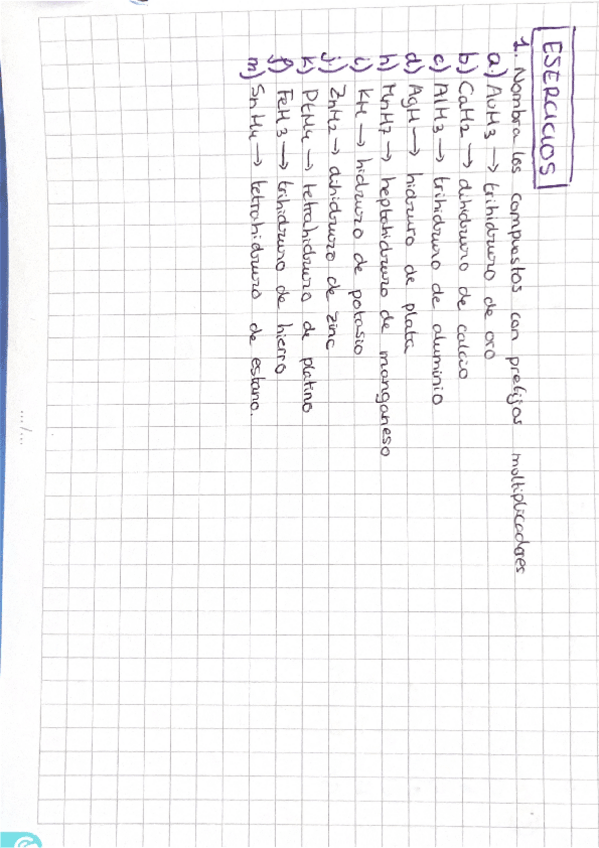 ESERCICIOS
1. Nombra los compuestos con prefijos multiplicadores
a) AuH3 → trihidruro de oro
b) CaH2 → dihidruro de calcio
c) AlH3 → trihidruro de aluminio
d) AgH → hidruro de plata
h) MnH7 → heptahidruro de manganeso
i) KH → hidruro de potasio
j) ZnH2 → dihidruro de zinc
k) PtH4 → tetrahidruro de platino
f) FeH3 → trihidruro de hierro
m) SnH4 → tetrahidruro de estano.
.../...